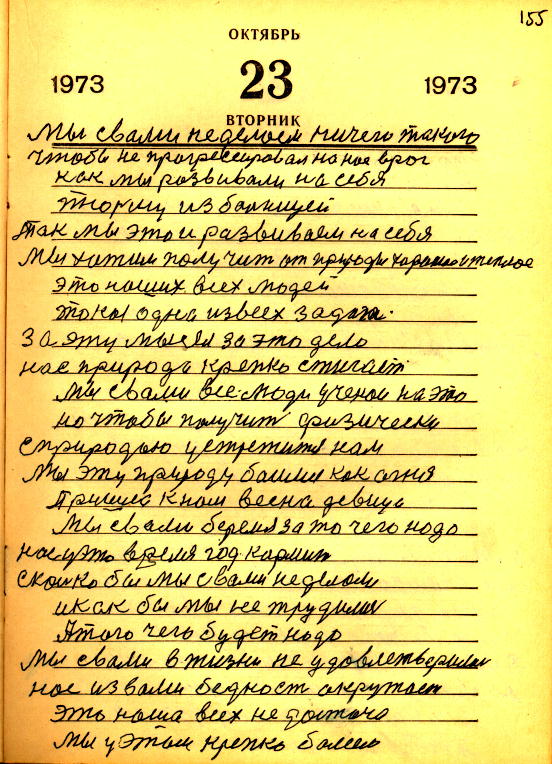 155
ОКТЯБРЬ
1973 23 1973
ВТОРНИК
Мы свами неделоем ничего такого
чтобы не прогрессировал на нас враг
как мы развивали на себя
из
так мы это и развиваем на себя
Мы хотим получит от природы хорошое и теплое
это наших всех людей
така одна извсех задача.
За эту мысля за это дело
нас природа крепко стигает
Мы свами все люди ученои на это
но чтобы получит физически
сприродою устретится нам
Мы эту природу баимся как огня
Пришла к нам весна девица
Мы свами беремся за то чего надо
нас у это время год кормит
сколко бы мы свами неделали
икак бы мы не трудился
Атого чего будет надо
Мы свами в жизни не удовлетворили
нас извами бедност окрутает
это наша всех не достача
Мы у этом крепко болеем